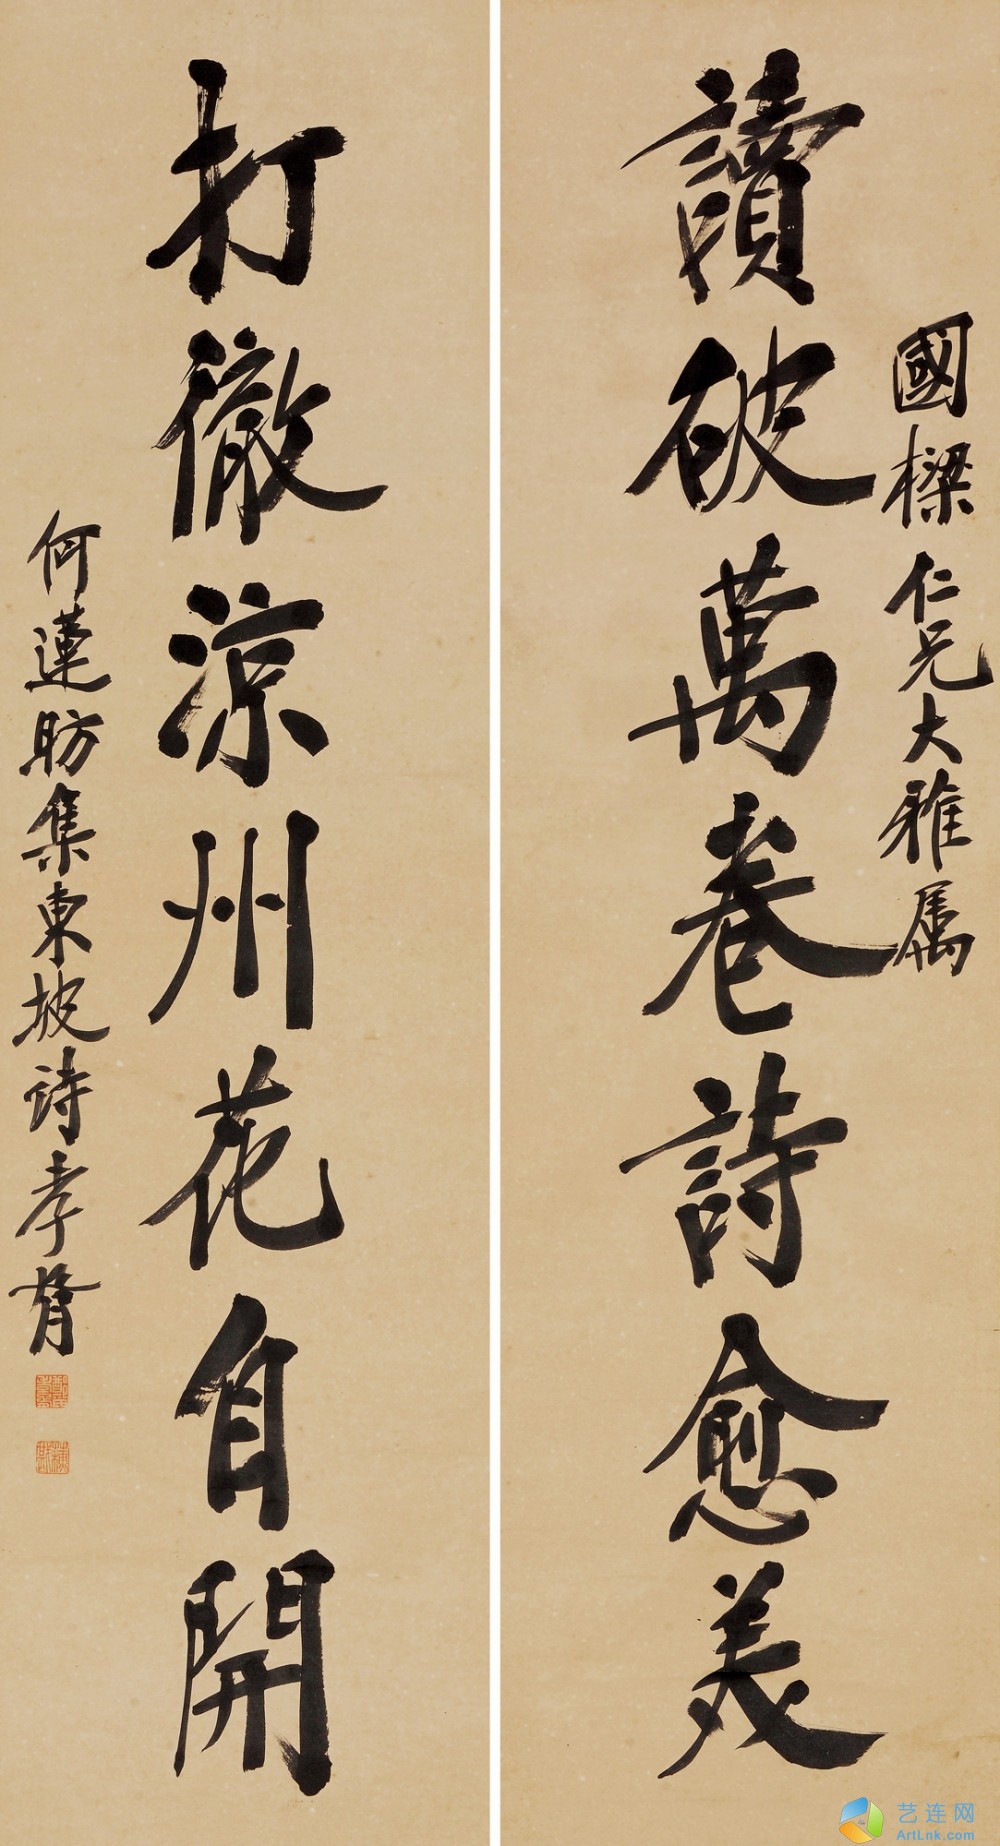 國樑仁兄大雅属
讀破萬卷詩愈美
打徹涼州花自開
何蓮昉集東坡詩孝胥
艺连网
ArtLnk.com